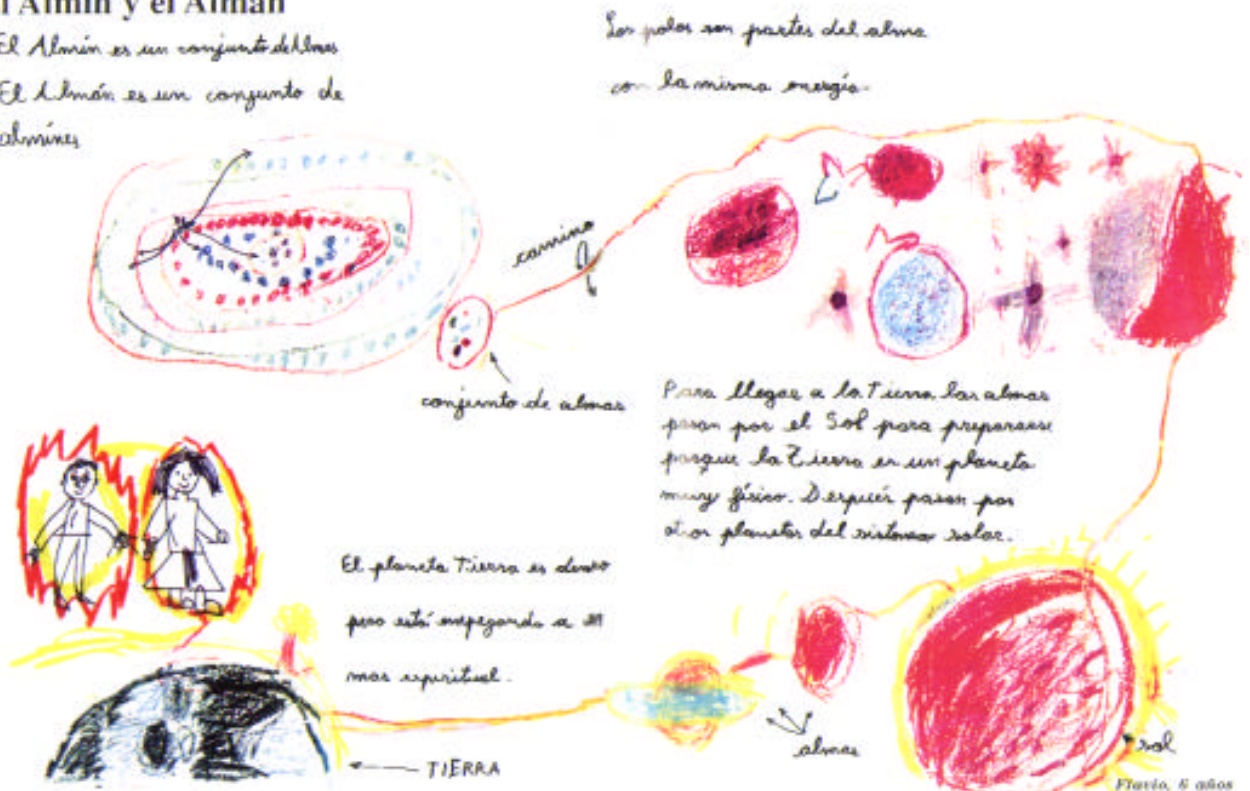 l Almín y el Almán
El Almín es un conjunto de Almas
El Almán es un conjunto de
almines
Los polos son partes del alma
con la misma energía.
camino
conjunto de almas
Para llegar a la Tierra las almas
pasan por el Sol para prepararse
porque la Tierra es un planeta
muy físico. Después pasan por
otros planetas del sistema solar.
El planeta Tierra es denso
pero está empezando a
mas espiritual.
almas
sol
TIERRA
Flavio, 6 años